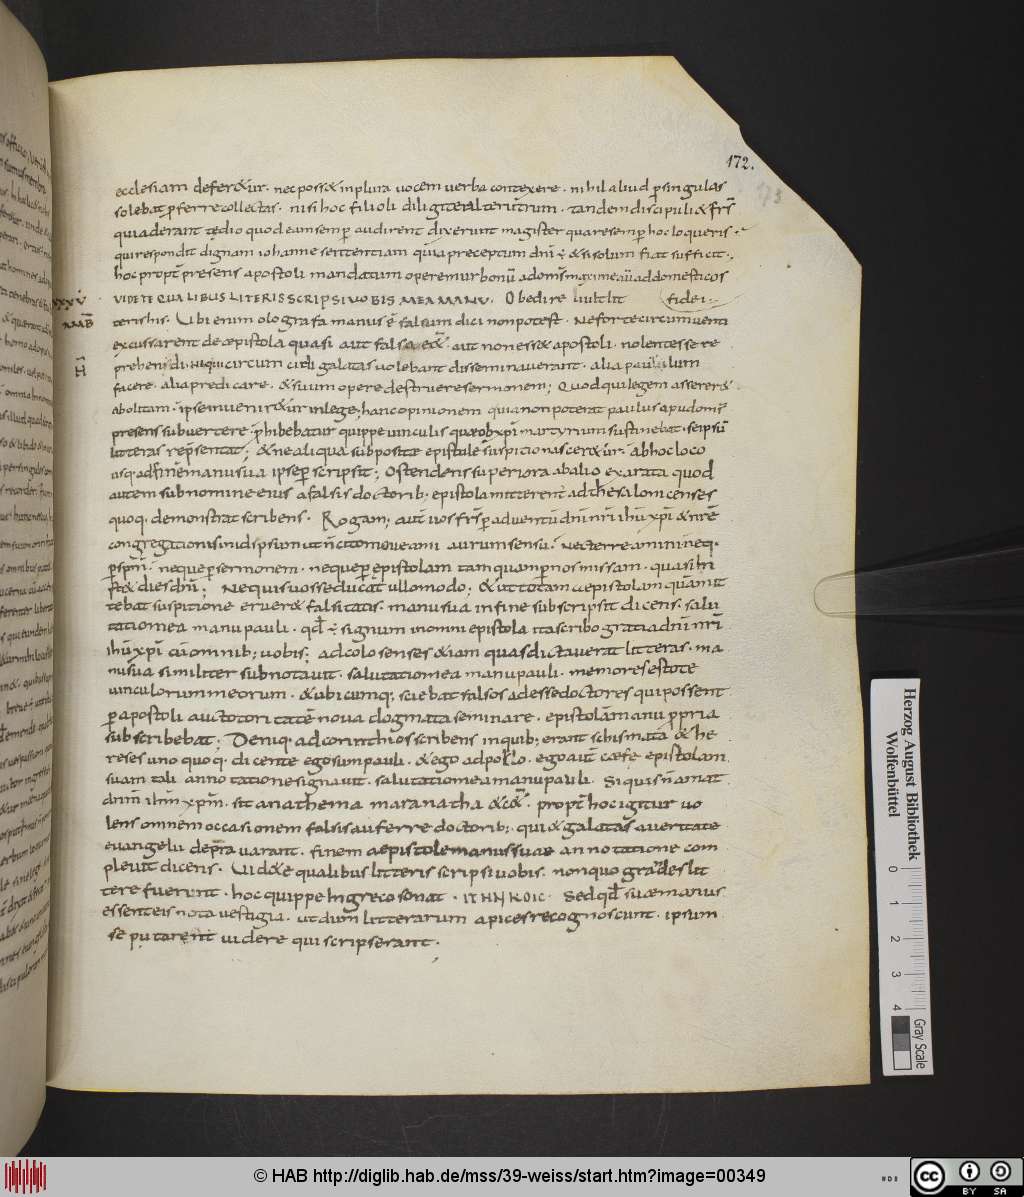 172.
ecclesiam deferetur. nec posset in plura uocem uerba contexere. nihil aliud p singulas
solebat pferre collectas. nisi hoc filioli diligite alterutrum. tandem discipuli & frs
qui aderant tedio quod eum semp audirent dixerunt magister quare semp hoc loqueris.
qui respondit dignam iohanne sententiam quia preceptum dni ē & si solum fiat sufficit.
hoc propt presens apostoli mandatum operemur bonū ad oms maxime aū ad domesticos
UIDETE QUALIBUS LITERIS SCRIPSI UOBIS MEA MANU. Obedire fidei.
XXXV
AMB
H
ubi enim olografa manus ē falsum dici non potest. Ne forte circumuenti
excussarent de aepistola quasi aut falsa aut non esset apostoli. nolentes se re
prehendi. Hi qui circum galatas uolebant disseminauerant. alia paulum
facere. alia predicare. & suum opere destruere sermonem; Quod qui legem assereret
abolitam. ipse inueniretur in lege; hanc opinionem quia non poterat paulus apud oms
presens subuertere. phibebatur quippe uinculis quae ob xpi martyrium sustinebat. se ipsū
litteras repsentat; & ne aliqua subpositae epistule suspicio nasceretur. ab hoc loco
usq. ad finē manu sua ipse pscripsit; Ostendens superiora ab alio exarata quod
autem sub nomine eius a falsis doctorib; epistola mitterent ad thesalonicenses
quoq. demonstrat scribens. Rogam; aut uos frs p aduentū dni nri ihu xpi & nrē
congregationis in id ipsum ut n cito moueamini a urum sensu. nec terreamini neq.
p spm. neque p sermonem. neque p epistolam tamquam p nos missam. quasi in
st& dies dni; Ne quis uos seducat ullo modo; & ut totam epistolam quā mit
tebat suspitione erueret falsitatis. manu sua in fine subscripsit dicens. salu
tatio mea manu pauli. qd ē signum in omni epistola ita scribo gratia dni nri
ihu xpi cū omnib; uobis; ad colosenses etiam quas dictauerat litteras. ma
nu sua similiter subnotauit. salutatio mea manu pauli. memores estote
uinculorum meorum. & ubicumq; sciebat falsos adesse doctores qui possent
p apostoli auctoritatē noua dogmata seminare. epistolā manu propria
subscribebat; Deniq. ad corinthios scribens in quib; erant schismata & he
reses unoquoq. dicente ego sum pauli. & ego adpollo. ego aut caefe epistolam
suam tali annotatione signauit. salutatio mea manu pauli. Si quis n amat
dnm ihm xpm. sit anathema maranatha &c. propt hoc igitur uo
lens omnem occasionem falsis auferre doctorib;. qui & galatas a ueritate
euangelii deprauarant. finem aepistole manus suae annotatione com
pleuit dicens. Uidete qualibus litteris scripsi uobis. non quo grandes lit
tere fuerunt. hoc quippe in greco sonat. Sed qd suae manus
essent eis nota uestigia. ut dum litterarum apices recognoscunt. ipsum
se putarent uidere qui scripserant.
Herzog August Bibliothek
Wolfenbüttel
0 1 2 3 4
Gray Scale
© HAB http://diglib.hab.de/mss/39-weiss/start.htm?image=00349
CC BY SA